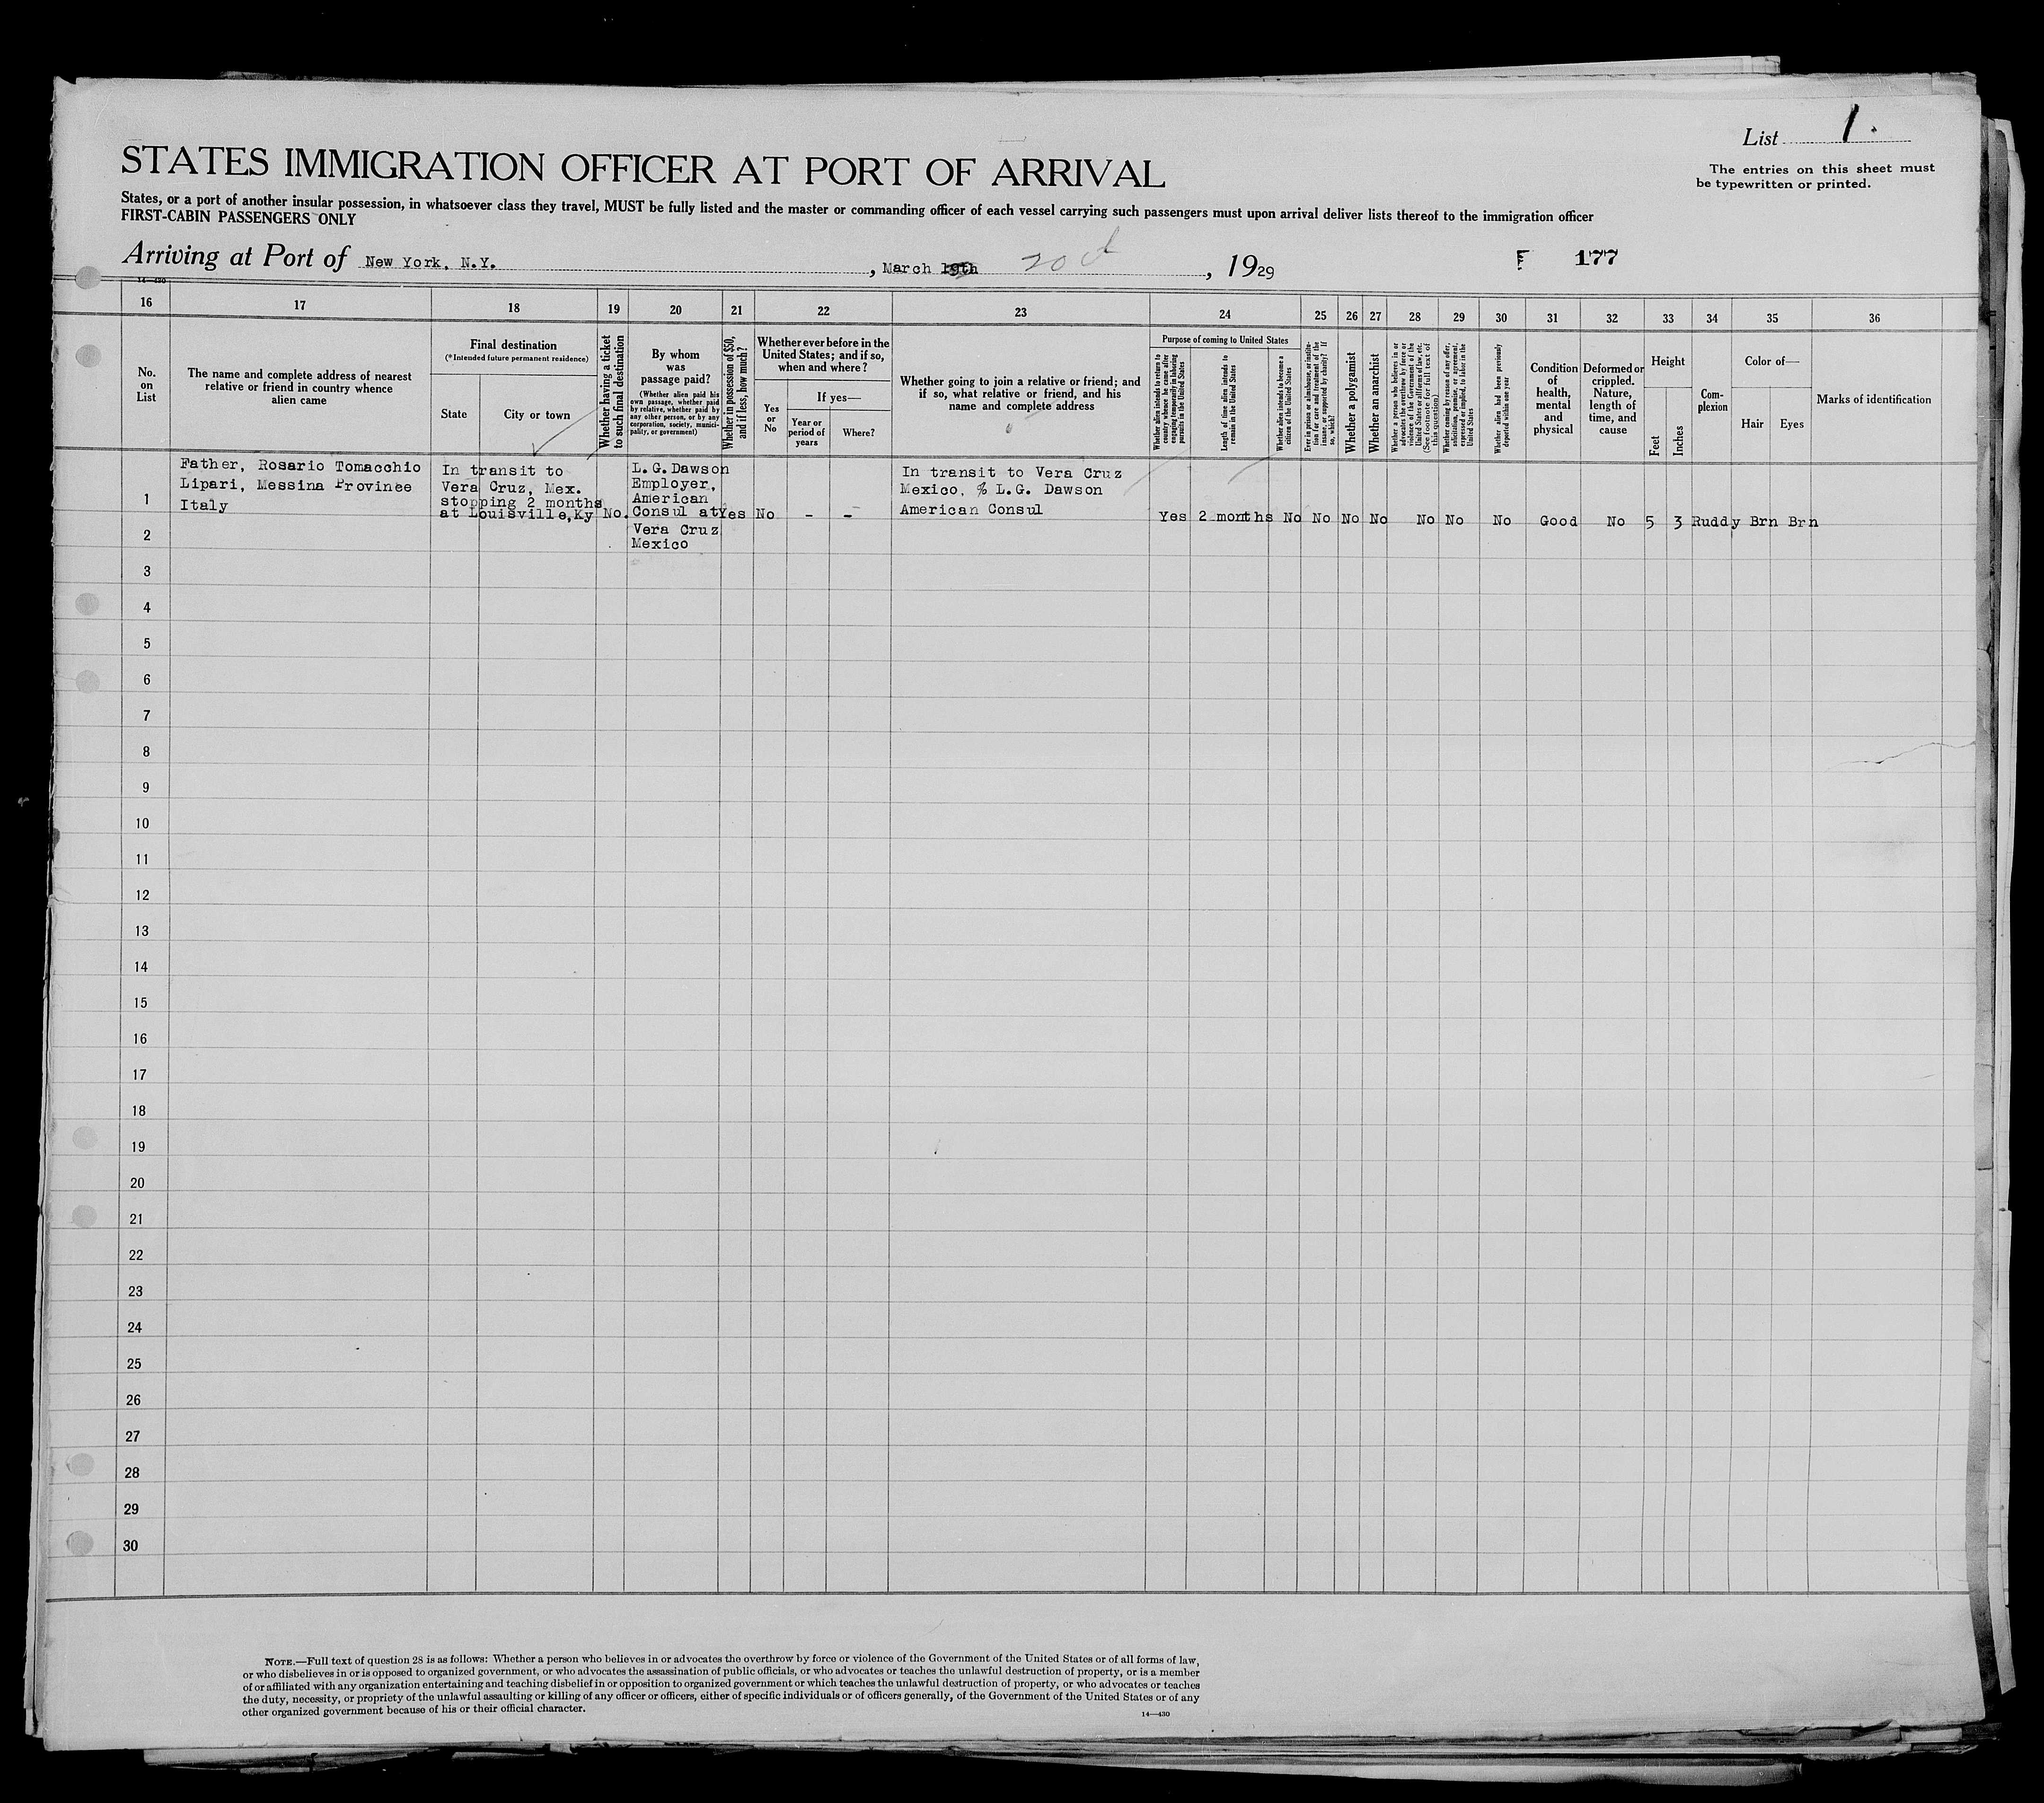 List 1.
The entries on this sheet must
be typewritten or printed.
STATES IMMIGRATION OFFICER AT PORT OF ARRIVAL
States, or a port of another insular possession, in whatsoever class they travel, MUST be fully listed and the master or commanding officer of each vessel carrying such passengers must upon arrival deliver lists thereof to the immigration officer
FIRST-CABIN PASSENGERS ONLY
Arriving at Port of New York, N.Y. , March 19th 20th , 1929 177
14—430
16 17 18 19 20 21 22 23 24 25 26 27 28 29 30 31 32 33 34 35 36
No.
on
List
The name and complete address of nearest
relative or friend in country whence
alien came
Final destination
(*Intended future permanent residence)
State
City or town
Whether having a ticket
to such final destination
By whom
was
passage paid?
(Whether alien paid his
own passage, whether paid
by relative, whether paid by
any other person, or by any
corporation, society, munici-
pality, or government)
Whether in possession of $50,
and if less, how much?
Whether ever before in the
United States; and if so,
when and where?
Yes
or
No
If yes—
Year or
period of
years
Where?
Whether going to join a relative or friend; and
if so, what relative or friend, and his
name and complete address
Purpose of coming to United States
Whether alien intends to return to
country whence he came after
engaging temporarily in laboring
pursuits in the United States
Length of time alien intends to
remain in the United States
Whether alien intends to become a
citizen of the United States
Ever in prison or almshouse, or institu-
tion for care and treatment of the
insane, or supported by charity? If
so, which?
Whether a polygamist
Whether an anarchist
Whether a person who believes in or
advocates the overthrow by force or
violence of the Government of the
United States or all forms of law, etc.
(See footnote for full text of
this question)
Whether coming by reason of any offer,
solicitation, promise, or agreement,
expressed or implied, to labor in the
United States
Whether alien had been previously
deported within one year
Condition
of
health,
mental
and
physical
Deformed or
crippled.
Nature,
length of
time, and
cause
Height
Feet
Inches
Com-
plexion
Color of—
Hair
Eyes
Marks of identification
1
Father, Rosario Tomacchio
Lipari, Messina Province
Italy
In transit to
Vera Cruz, Mex.
stopping 2 months
at Louisville,Ky
No.
L.G.Dawson
Employer,
American
Consul at
Vera Cruz
Mexico
Yes No - -
In transit to Vera Cruz
Mexico, % L.G. Dawson
American Consul
Yes 2 months No No No No No No No Good No 5 3 Ruddy Brn Brn
2
3
4
5
6
7
8
9
10
11
12
13
14
15
16
17
18
19
20
21
22
23
24
25
26
27
28
29
30
NOTE.—Full text of question 28 is as follows: Whether a person who believes in or advocates the overthrow by force or violence of the Government of the United States or of all forms of law,
or who disbelieves in or is opposed to organized government, or who advocates the assassination of public officials, or who advocates or teaches the unlawful destruction of property, or is a member
of or affiliated with any organization entertaining and teaching disbelief in or opposition to organized government or which teaches the unlawful destruction of property, or who advocates or teaches
the duty, necessity, or propriety of the unlawful assaulting or killing of any officer or officers, either of specific individuals or of officers generally, of the Government of the United States or of any
other organized government because of his or their official character.
14—430